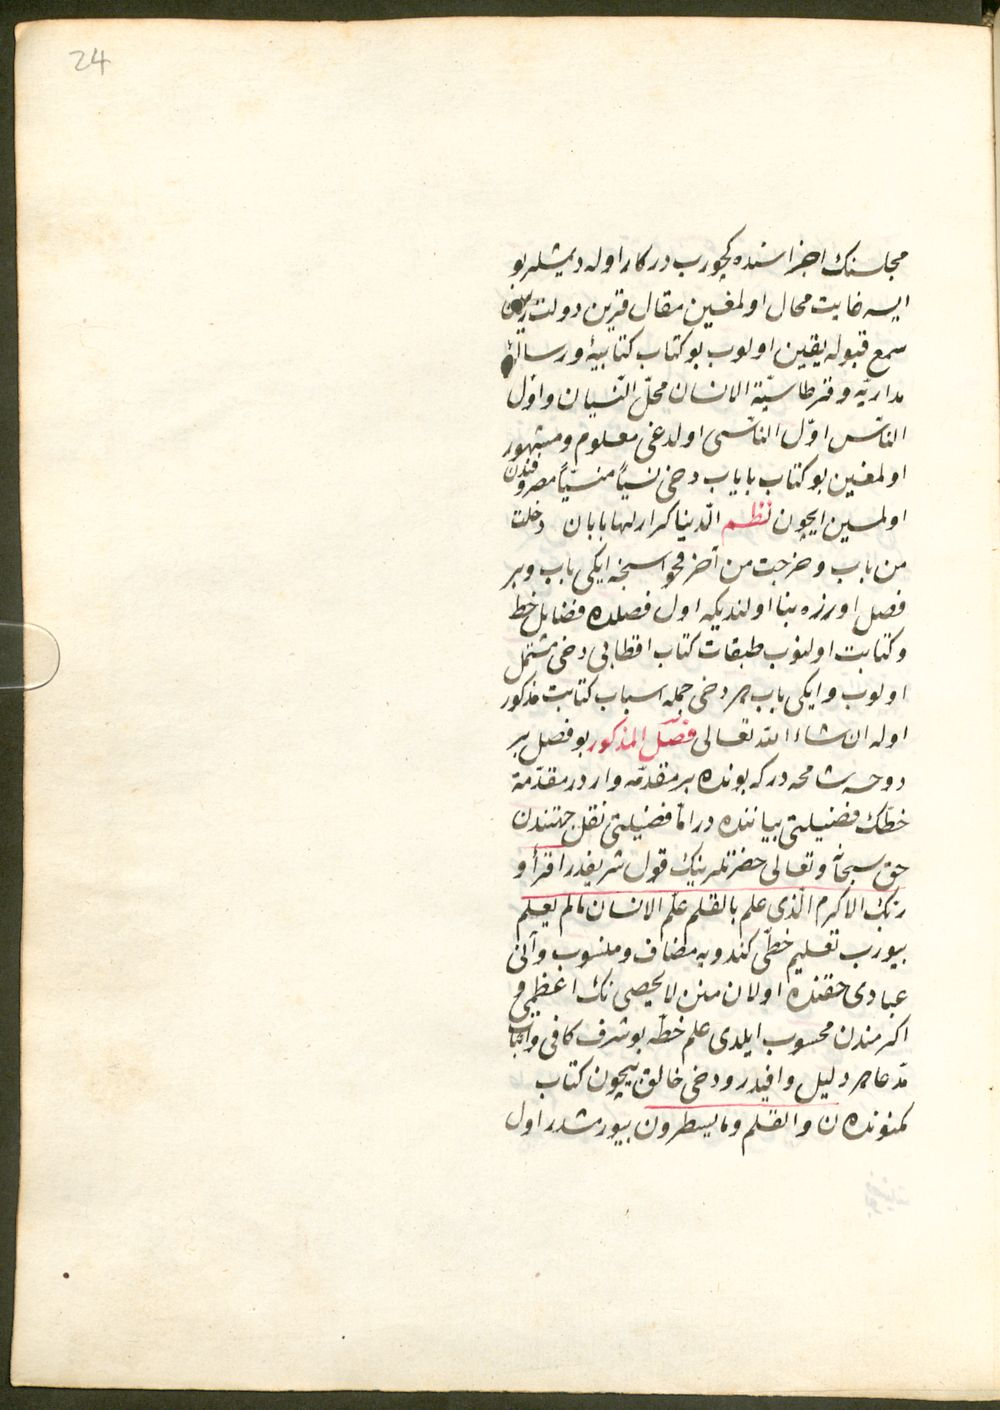 24
مجلسنك اجزاسنده كچورب دركار اوله ديمشلر بو
ايسه غايت محال اولمغين مقال قرين دولت
سمع قبوله يقين اولوب بو كتاب كتابيۀ و رسالۀ
مداريّه و قرطاسيّة الانسان محلّ النّسيان و اوّل
النّاس اوّل النّاسى اولدغى معلوم و مشهور
اولمغين بو كتاب ناياب دخى نسياً منسيّاً مصروفندن
اولمسين ايچون نظم الدّنيا كدار لها بابان دخلت
من باب و خرجت من آخر فحواسنجه ايكى باب و بر
فصل اوزره بنا اولنديكه اول فصلده فضائل خط
و كتابت اولنوب طبقات كتاب اقطابى دخى مشتمل
اولوب و ايكى بابده دخى جمله اسباب كتابت مذكور
اوله ان شاء الله تعالى فصل المذكور بو فصل بر
دوحۀ شامخه در كه بونده بر مقدّمه واردر مقدّمة
خطّك فضيلتى بياننده در امّا فضيلتى نقل جهتندن
حق سبحانه و تعالى حضرتلرينك قول شريفدر اقرأ و
ربّك الاكرم الّذى علم بالقلم علّم الانسان مالم يعلم
بيورب تعليم خطّى كندويه مضاف و منسوب و آنى
عبادى حقنده اولان منن لا يحصى نك اعظمى و
اكرمندن محسوب ايلدى علم خطّه بو شرف كافى و اثبات
مدّعايه دليل وافيدر و دخى خالق بيچون كتاب
مكنونده ن و القلم و ما يسطرون بيورمشدر اول